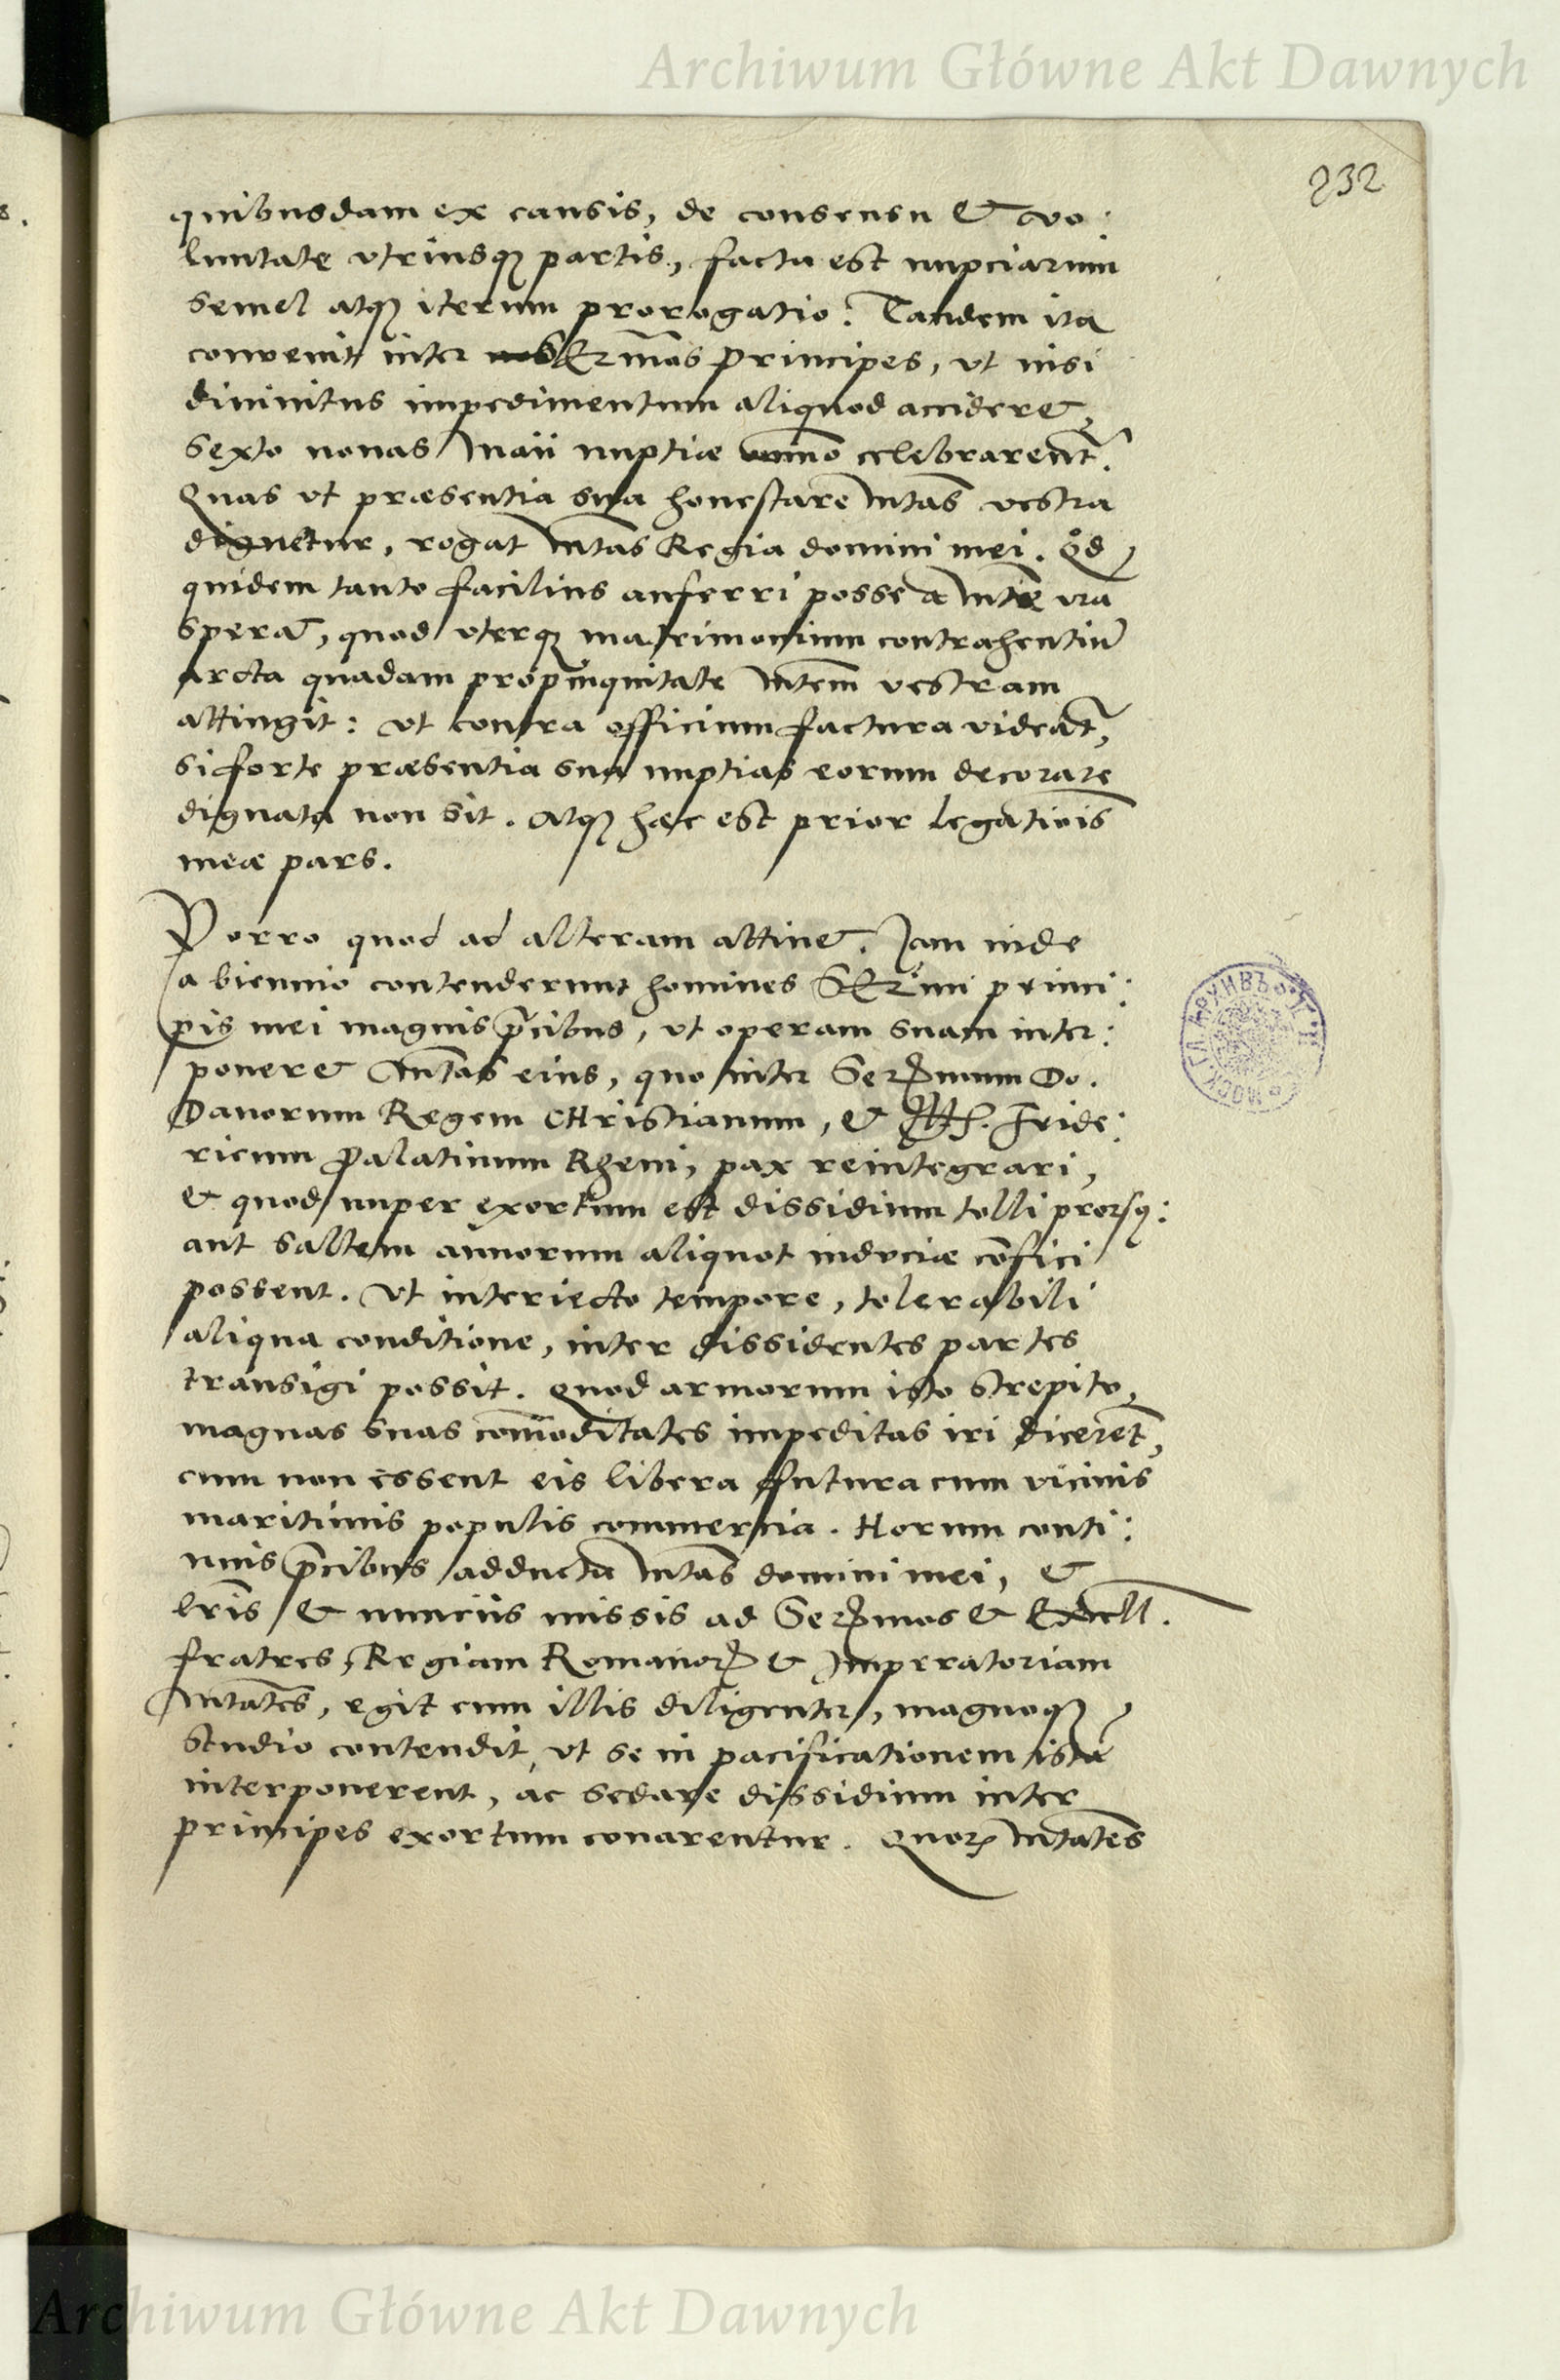 Archiwum Główne Akt Dawnych
232
quibusdam ex causis, de consensu et vo:
luntate vtriusqꝫ partis, facta est nupciarum
semel atqꝫ iterum prorogatio: Tandem ita
convenit inter nos SErm̄os Principes, ut nisi
divinitus impedimentum aliquod accideret,
sexto nonas Maii nuptiæ omnino celebrarent̃.
Quas ut præsentia sua honestare Mtãs vestra
dignetur, rogat Mtãs Regia domini mei. Qđ
quidem tanto facilius auferri posse a Mtẽ vr̃a
sperat̃, quod uterqꝫ matrimonium contrahentiũ
arcta quadam propinquitate Mtem̃ vestram
attingit: ut contra officium factura videat̃,
si forte præsentia sua nuptias eorum decorare
dignata non sit. Atqꝫ hæc est prior legatiõis
meæ pars.
Porro quod ad alteram attinet. Jam inde
a biennio contenderunt homines SEr̃mi princi:
pis mei magnis p̃cibus, ut operam suam inter:
poneret Mtãs eius, quo inter Serꝫmum Do.
Danorum Regem CHristianum, et Ill. Fride:
ricum Palatinum Rheni, pax reintegrari,
et quod nuper exortum est dissidium tolli prorsq:
aut saltem annorum aliquot induciæ cõfici
possent. Ut interiecto tempore, tolerabili
aliqua conditione, inter dissidentes partes
transigi possit. Quod armorum isto strepitu,
magnas suas com̃oditates impeditas iri dicerent̃,
cum non essent eis libera futura cum vicinis
maritimis populis commercia. Horum conti:
nuis p̃cibus adducta Mtãs domini mei, et
lr̃is et nunciis missis ad Serꝫmos et Excell.
fratres, Regiam Romanorꝫ et Imperatoriam
Mtatẽs, egit cum illis diligenter, magnoqꝫ
studio contendit, ut se in pacificationem istã
interponerent, ac sedare dissidium inter
principes exortum conarentur. Quorꝫ Mtatẽs
Archiwum Główne Akt Dawnych